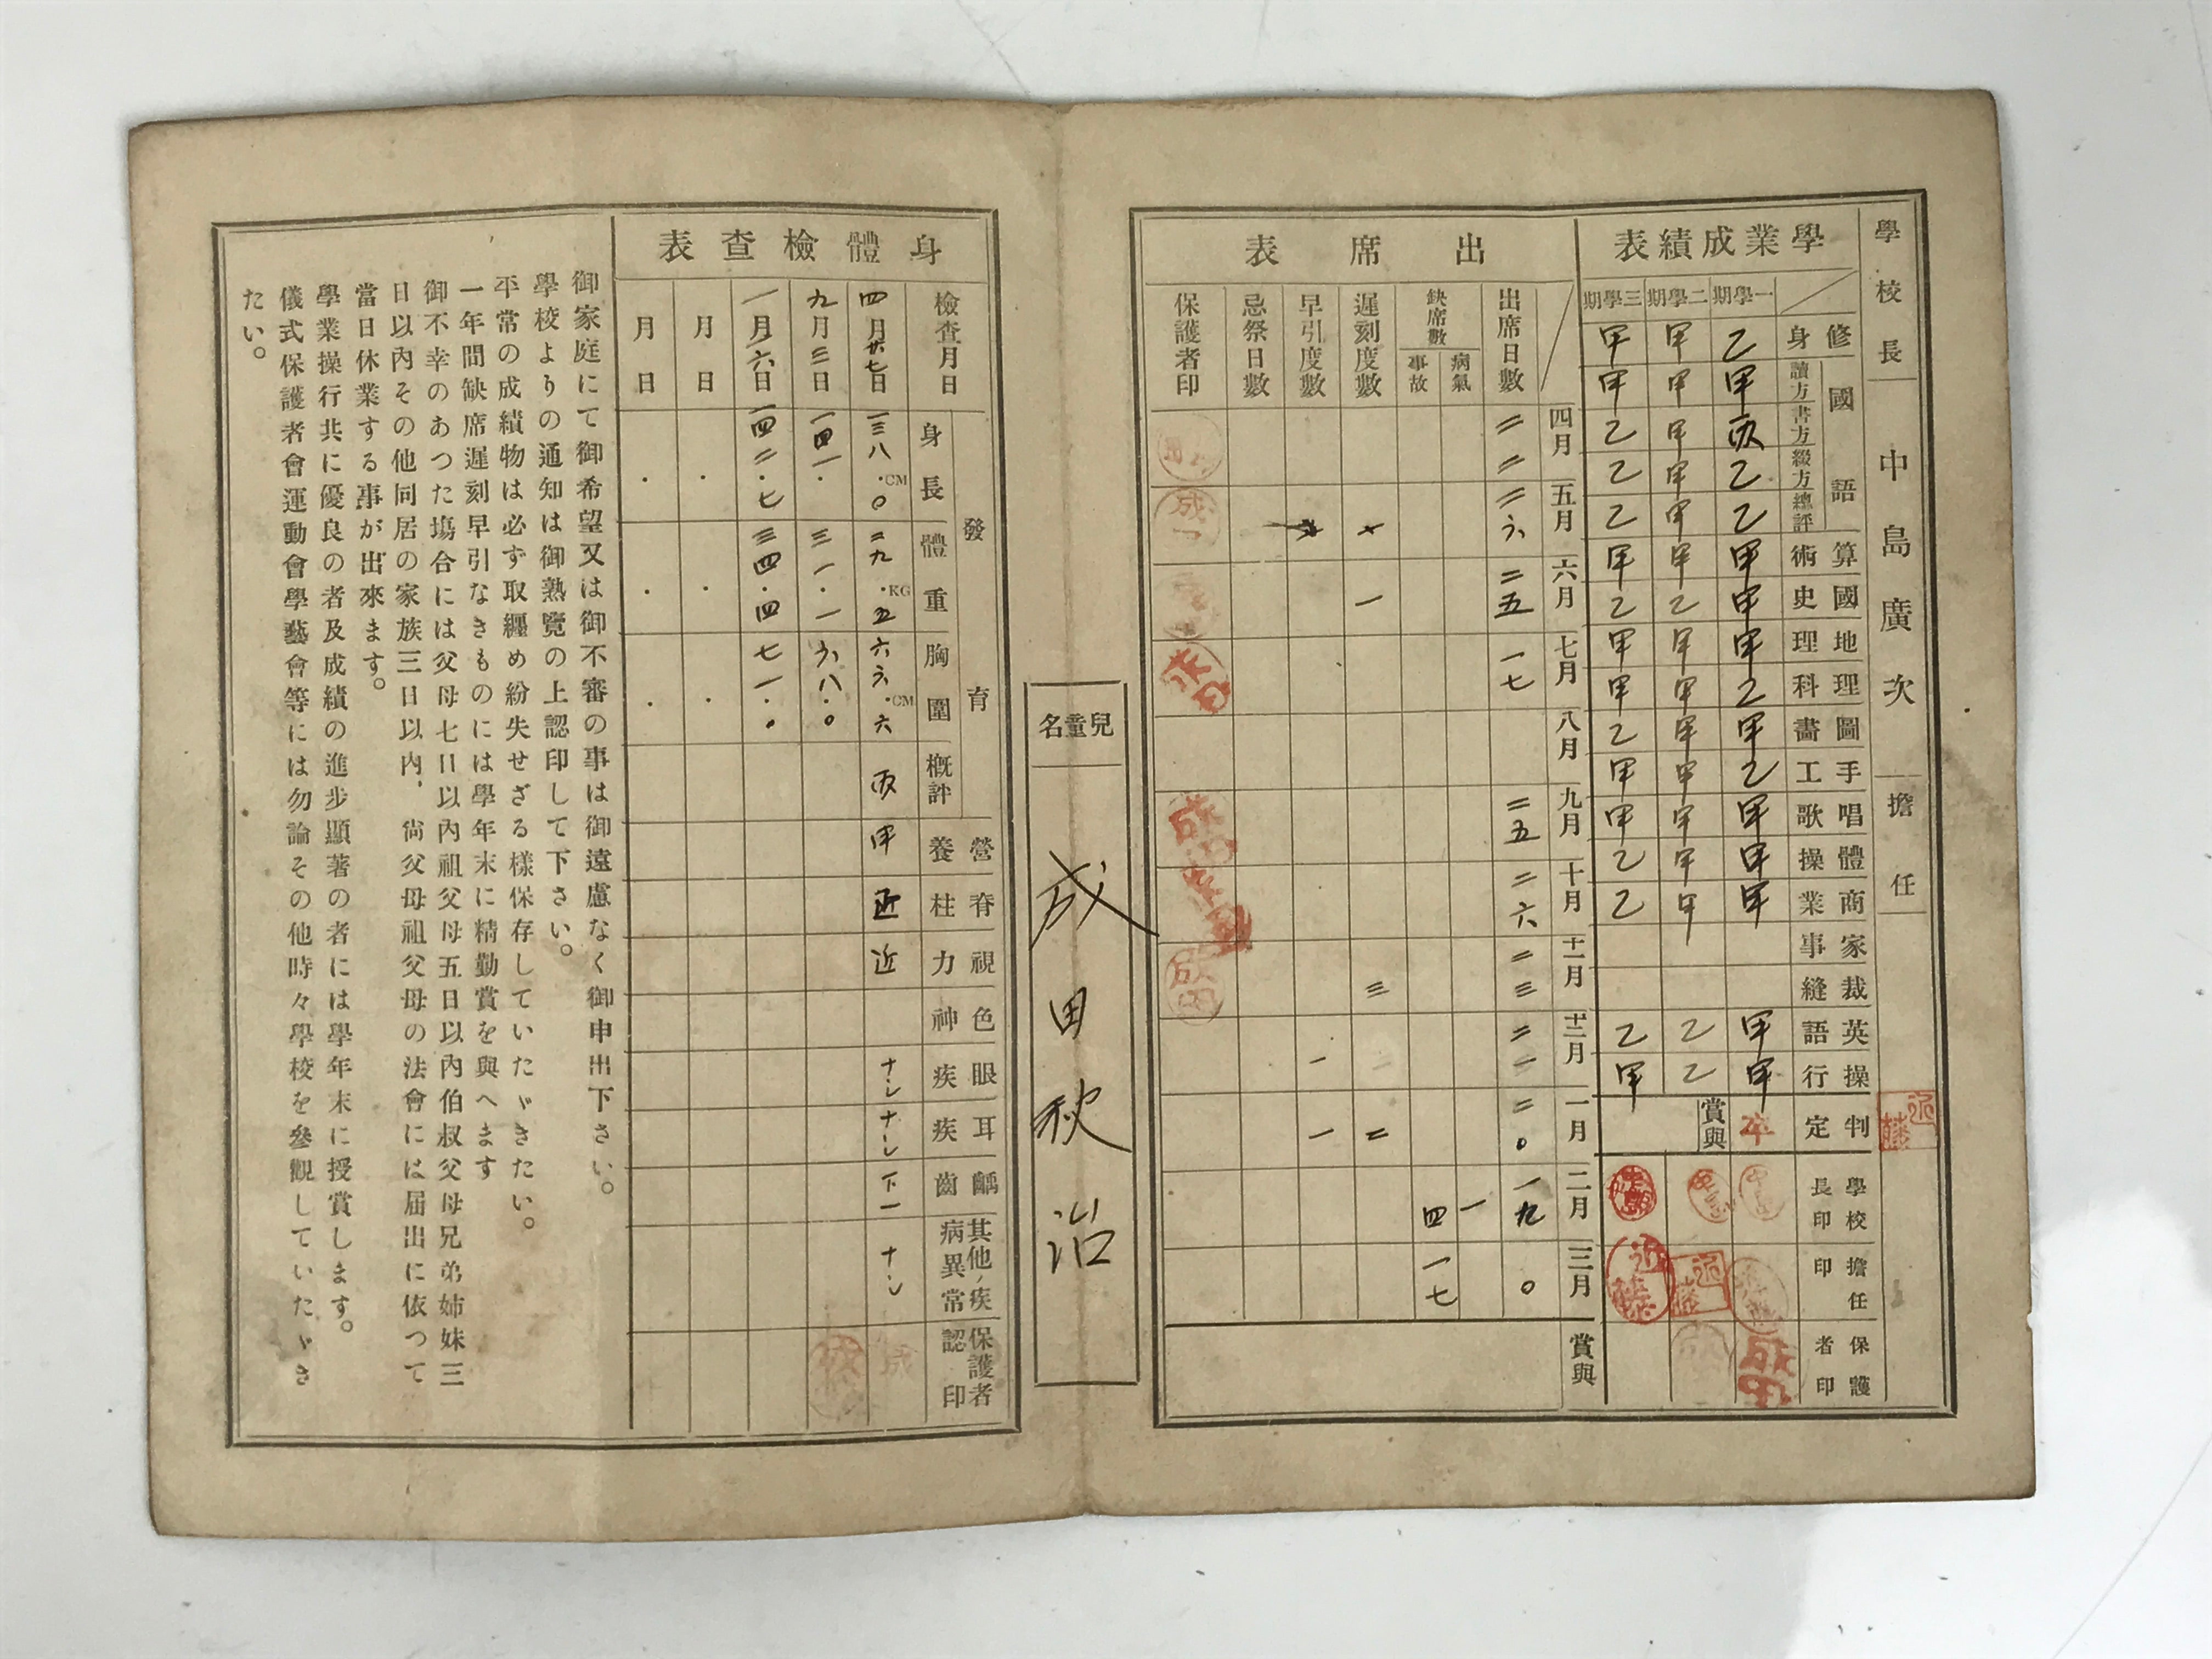 學校長 中島廣次 擔任 近藤
學業成績表
一學期 二學期 三學期
修身 乙 甲 甲
國語
讀方 甲 甲 甲
書方 丙 甲 乙
綴方 乙 甲 乙
總評 乙 甲 乙
算術 甲 甲 甲
國史 甲 乙 乙
地理 甲 甲 甲
理科 乙 甲 甲
圖畫 甲 甲 乙
手工 乙 甲 甲
唱歌 甲 甲 甲
體操 甲 甲 乙
商業 甲 甲 乙
家事
裁縫
英語 甲 乙 乙
操行 甲 乙 甲
判定 卒 賞與
學校長印 中島 中島 中島
擔任印 近藤 近藤 近藤
保護者印 成田
出席表
出席日數 缺席數 病氣 事故 遲刻度數 早引度數 忌祭日數 保護者印
四月 二二
五月 二六
六月 二五 一
七月 一七
八月
九月 二五
十月 二六
十一月 二三 三
十二月 二一 一
一月 二〇 二 一
二月 一九 一 四
三月 〇 一七
賞與
兒童名
成田秋治
身體檢査表
檢査月日 四月廿七日 九月三日 一月一六日 月日 月日
發育
身長 一三八.CM〇 一四一. 一四二.七 . .
體重 二九.KG五 三一.一 三四.四 . .
胸圍 六六.CM六 六八.〇 七一.〇 . .
概評 丙
營養 甲
脊柱
視力 近
色神
眼疾 ナシ
耳疾 ナシ
齲齒 下一
其他ノ疾病異常 ナシ
保護者認印
御家庭にて御希望又は御不審の事は御遠慮なく御申出下さい。
學校よりの通知は御熟覽の上認印して下さい。
平常の成績物は必ず取纒め紛失せざる樣保存していたゞきたい。
一年間缺席遲刻早引なきものには學年末に精勤賞を與へます
御不幸のあつた塲合には父母七日以內祖父母五日以內伯叔父母兄弟姉妹三
日以內その他同居の家族三日以內、尙父母祖父母の法會には屆出に依つて
當日休業する事が出來ます。
學業操行共に優良の者及成績の進步顯著の者には學年末に授賞します。
儀式保護者會運動會學藝會等には勿論その他時々學校を參觀していたゞき
たい。